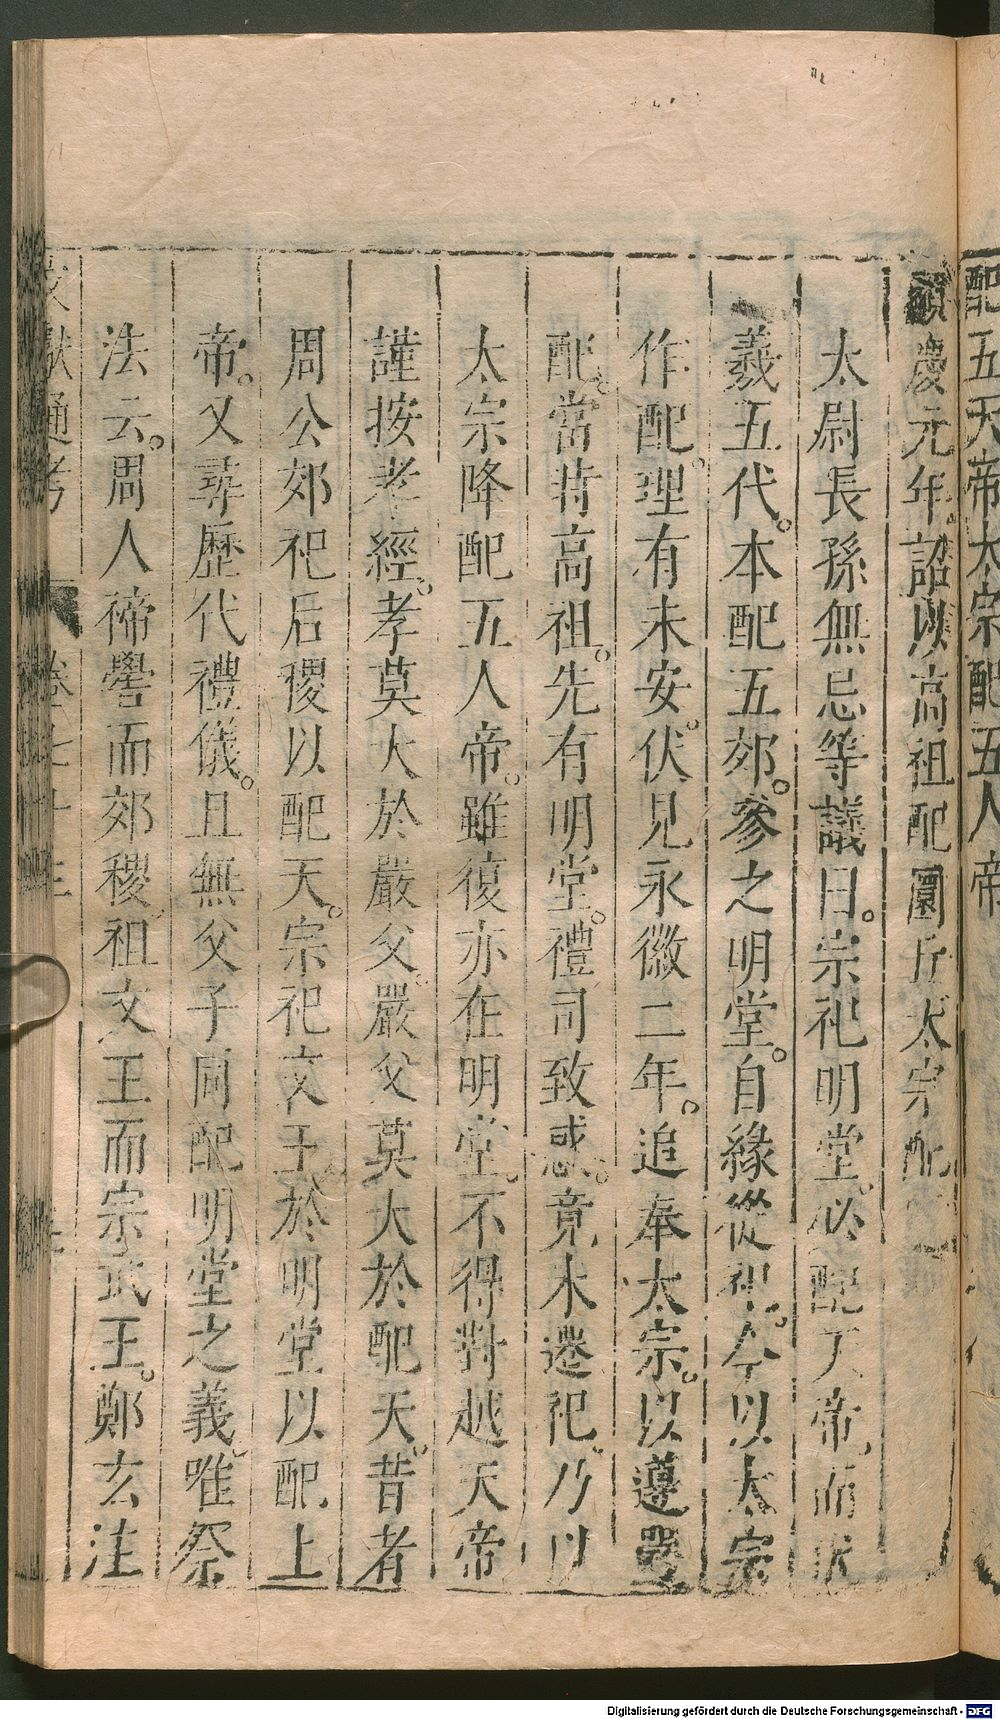 配五天帝太宗配五人帝
顯慶元年詔以高祖配圜丘太宗配
太尉長孫無忌等議曰。宗祀明堂。必配天帝。而伏
羲五代。本配五郊。參之明堂。自緣從祀。今以太宗
作配。理有未安。伏見永徽二年。追奉太宗。以遵嚴
配。當時高祖。先有明堂。禮司致惑。竟未遷祀。乃以
太宗降配五人帝。雖復亦在明堂。不得對越天帝
謹按孝經。孝莫大於嚴父。嚴父莫大於配天。昔者
周公郊祀后稷以配天。宗祀文王於明堂以配上
帝。又尋歷代禮儀。且無父子同配明堂之義。唯祭
法云。周人禘嚳而郊稷。祖文王而宗武王。鄭玄注
文獻通考 卷七十三
Digitalisierung gefördert durch die Deutsche Forschungsgemeinschaft - DFG